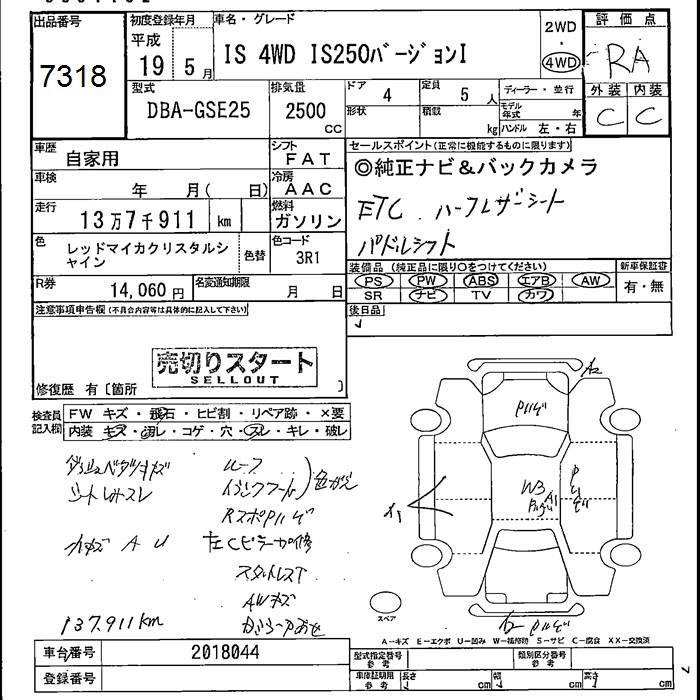 出品番号
7318
初度登録年月
平成
19年 5月
車名・グレード
IS 4WD IS250バージョンI
2WD
・
4WD
評価点
RA
外装 内装
C C
型式
DBA-GSE25
排気量
2500
cc
ドア
4
定員
5人
形状
積載
kg
ディーラー・並行
モデル年式 年
ハンドル 左・右
車歴
自家用
シフト
FAT
車検
年 月( 日)
冷房
AAC
走行
13万7千911 km
燃料
ガソリン
色
レッドマイカクリスタルシャイン
色替
色コード
3R1
R券
14,060円
名変通知期限
月 日
セールスポイント(正常に機能するものに限ります)
◎純正ナビ&バックカメラ
ETC. ハーフレザーシート
パドルシフト
装備品 (純正品に限り○をつけてください)
PS PW ABS エアB AW
SR ナビ TV カワ
新車保証書
有・無
後日品
注意事項申告欄(不具合内容等は具体的に記入して下さい)
売切りスタート
SELLOUT
修復歴 有〔箇所 〕
検査員記入欄
FW キズ・飛石・ヒビ割・リペア跡・×要
内装 キズ・汚レ・コゲ・穴・スレ・キレ・破レ
シートレザースレ
ルーフ
色がえ
左Cピラー
AWキズ
137,911km
A2
Pハゲ
W3
A1
A1
A2 Pハゲ
スペア
A-キズ E-エクボ U-凹み W-補修跡 S-サビ C-腐食 XX-交換済
車台番号
2018044
登録番号
型式指定番号
参考
類別区分番号
参考
車庫証明用
参考
長さ cm
幅 cm
高さ cm
7